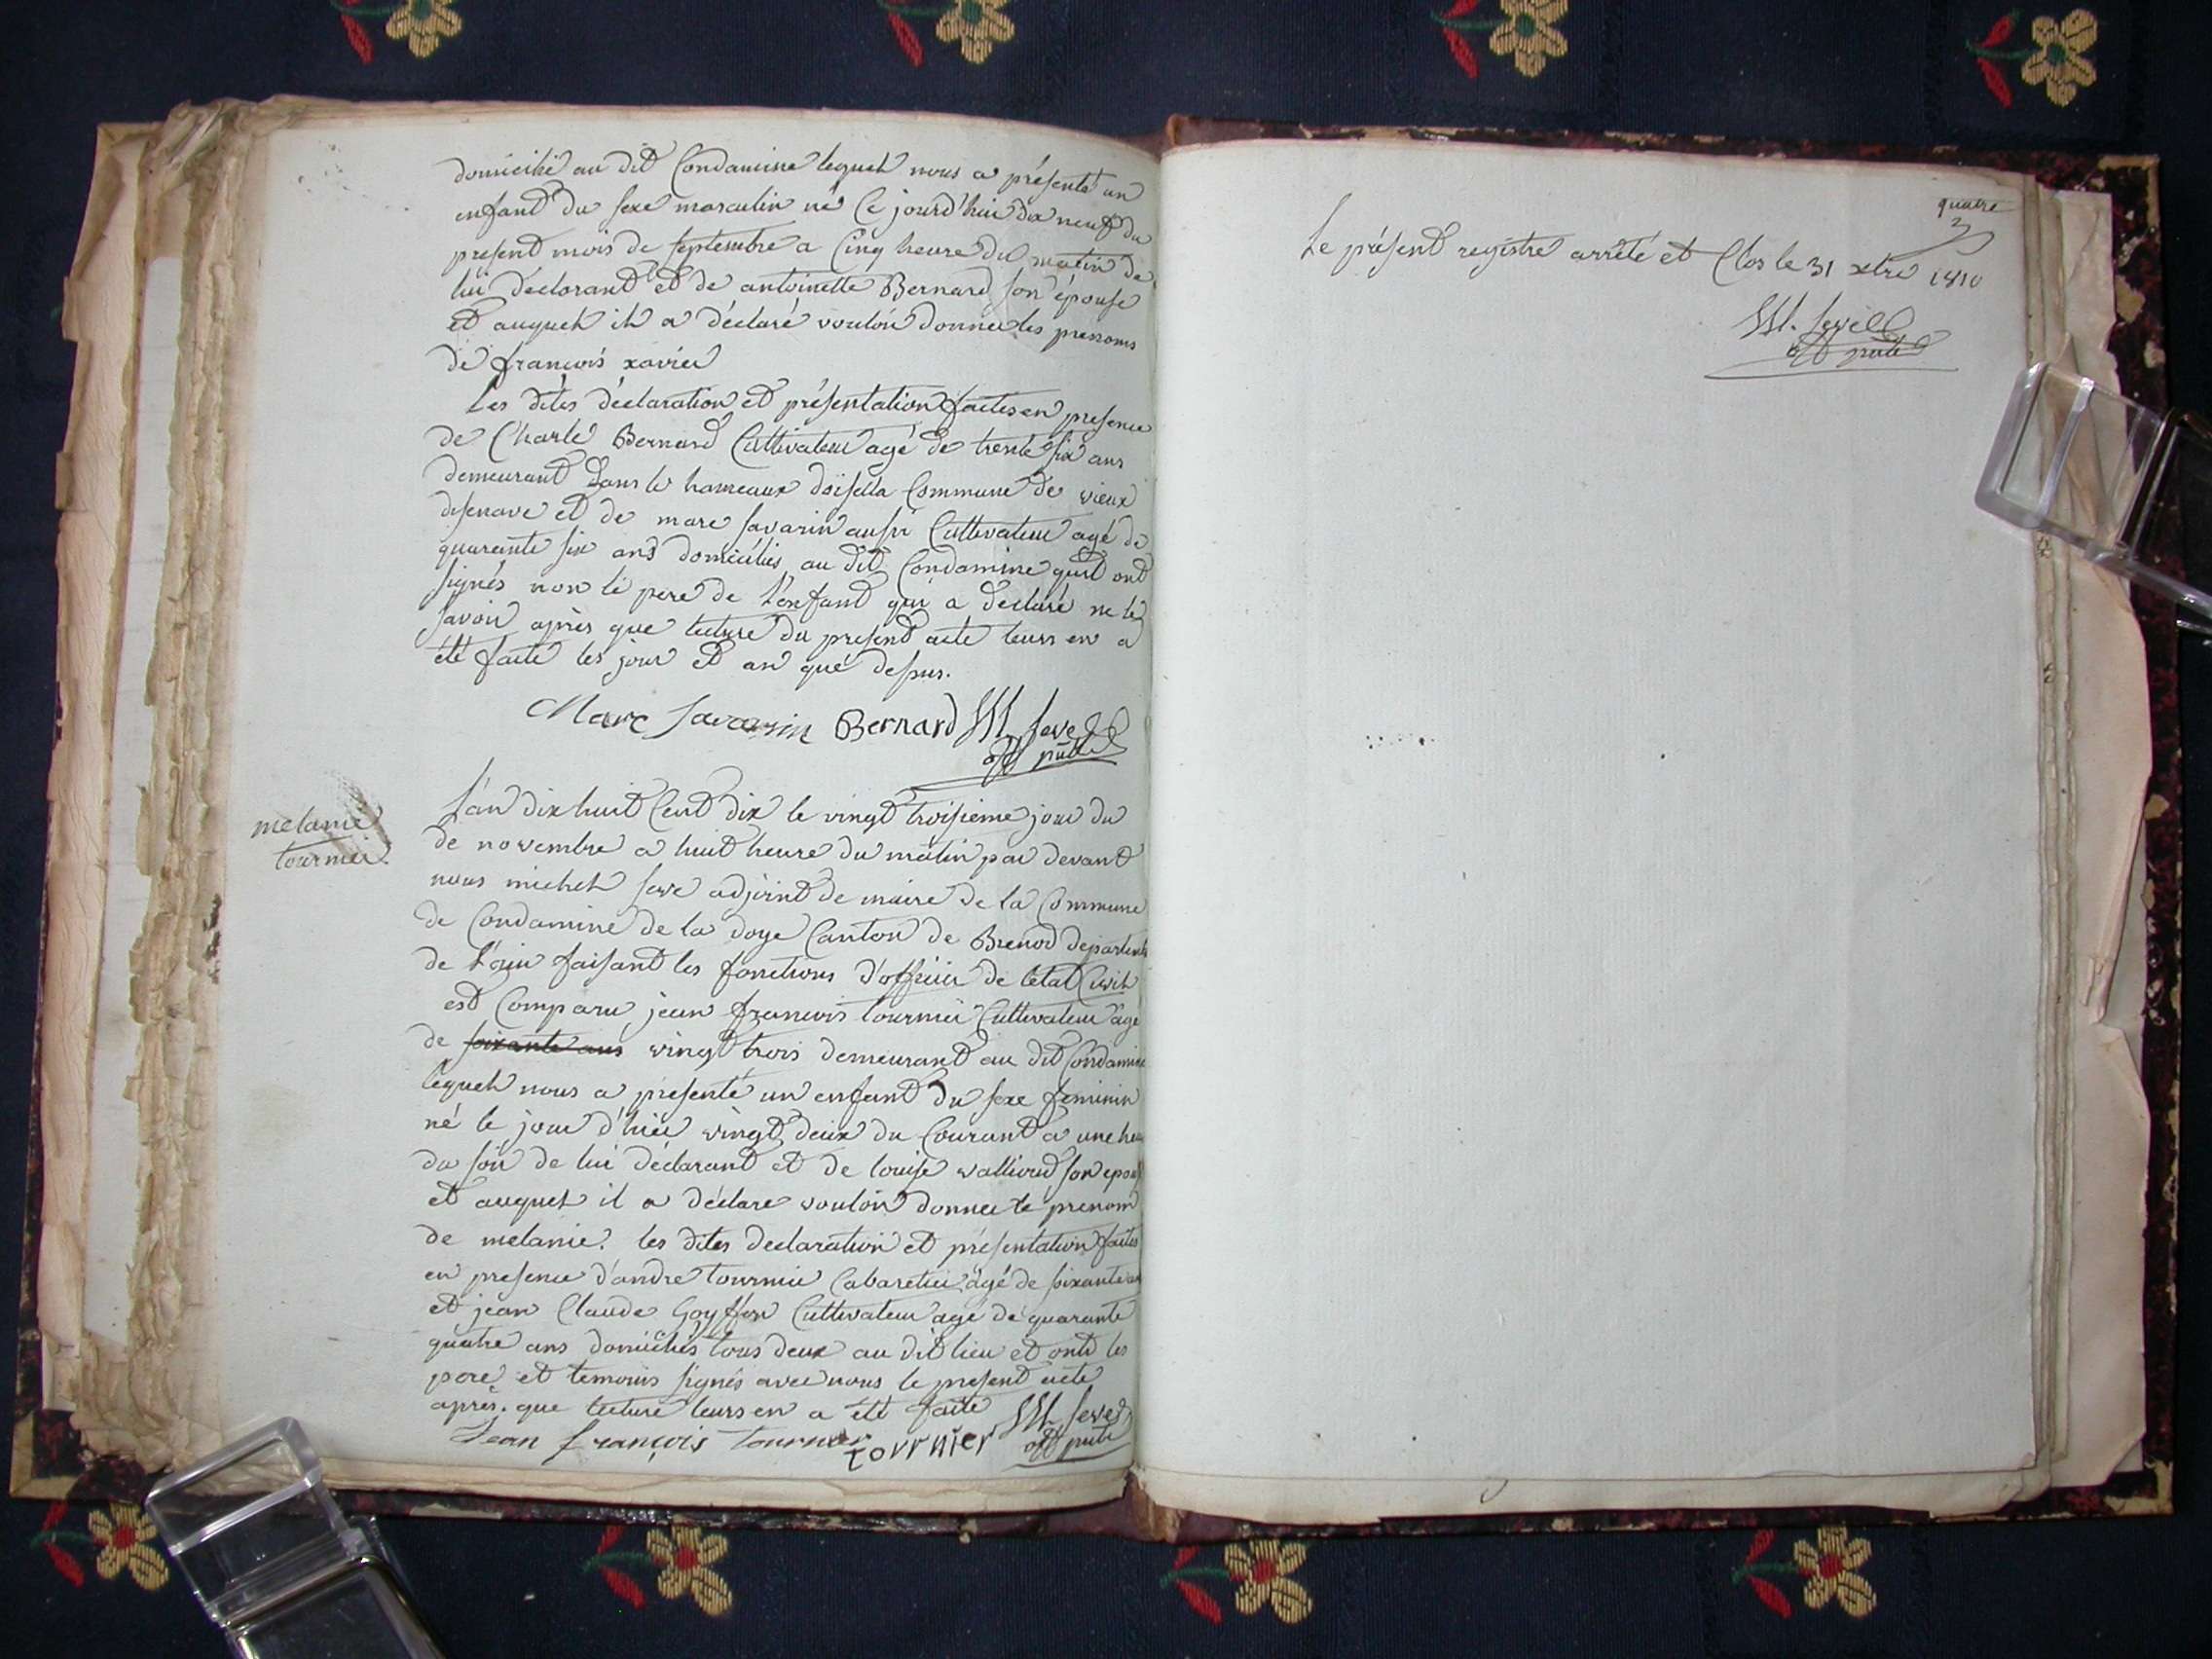 domicilié au dit Condamine lequel nous a présenté un
enfant du sexe masculin né ce jourd'hui dix neuf du
present mois de septembre a Cinq heure du matin de
lui déclarant et de antoinette Bernard son épouse
et auquel il a déclaré vouloir donner les prenoms
de françois xavier
Les dites déclaration et présentation faites en presence
de Charle Bernard Cultivateur agé de trente six ans
demeurant dans le hameaux doisella Commune de vieux
disenave et de marc savarin aussi Cultivateur agé de
quarante six ans domiciliés au dit Condamine quit ont
signés non le pere de l'enfant qui a declaré ne le
savoir après que lecture du present acte leurs en a
été faite les jour et an que dessus.
Marc Savarin Bernard M. Seve
off public
melanie
tournier
L'an dix huit Cent dix le vingt troisieme jour du
de novembre a huit heure du matin par devant
nous michel seve adjoint de maire de la Commune
de Condamine de la doye Canton de Brenod departement
de l'ain faisant les fonctions d'officier de l'etat Civil
est Comparu jean françois tournier Cultivateur agé
de soixante ans vingt trois demeurant au dit Condamine
lequel nous a presenté un enfant du sexe feminin
né le jour d'hier vingt deux du Courant a une heu
du soir de lui déclarant et de louise wallioud son epous
et auquel il a déclaré vouloir donner le prenom
de melanie. les dites declaration et présentation faites
en presence d'andre tournier Cabaretier agé de soixante an
et jean Claude Goyffon Cultivateur agé de quarante
quatre ans domiciliés tous deux au dit lieu et ont les
pere et temoins signés avec nous le present acte
après que lecture leurs en a été faite M. Seve
Jean françois tournier tournier off public
quatre
Le présent registre arrêté et Clos le 31 xbre 1810
M. Seve
off public